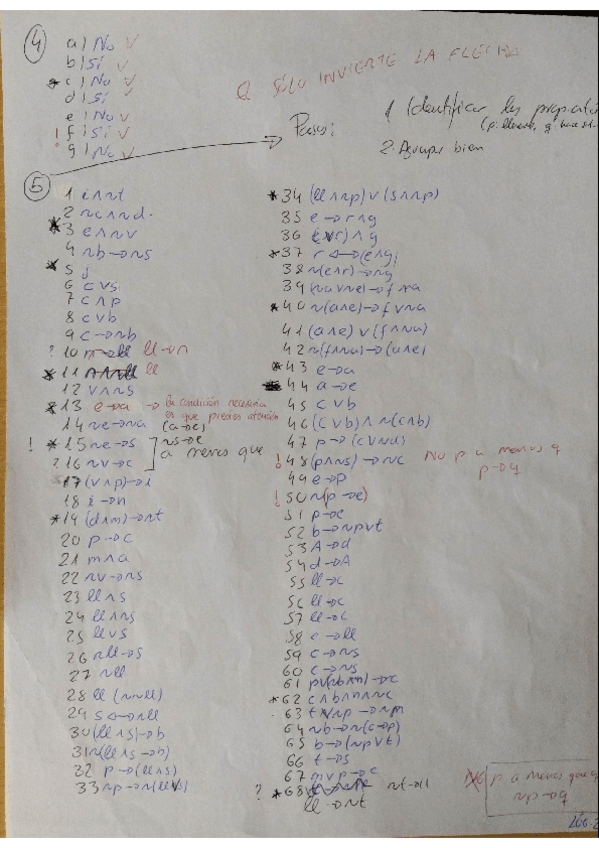 4
a) No V
b) Sí V
* c) No V
d) Sí V
e) No V
! f) Sí V
g) No V
SÓLO INVIERTE LA FLECHA
Pasos:
1 Identificar las
2. Agrupar bien
5
1 i∧¬t
2 ¬c∧¬d
* 3 e∧¬v
4 ¬b→¬s
* 5 j
6 c∨s
7 c∧p
8 c∨b
9 c→¬b
? 10 ll→n
* 11 ll
12 v∧¬s
* 13 e→a → la condición necesaria es que prestes atención
(a→e)
14 ¬e→¬a
! * 15 ¬e→s
¬s→e
a menos que
? 16 ¬v→c
* 17 (v∧p)→i
18 i→n
* 19 (d∧m)→¬t
20 p→c
21 m∧a
22 ¬v→¬s
23 ll∧s
24 ll∧¬s
25 ll∨s
26 ¬ll→s
27 ¬ll
28 ll (¬¬ll)
29 s↔¬ll
30 (ll∧s)→b
31 ¬(ll∧s→b)
32 p→(ll∧s)
33 ¬p→¬(ll∨s)
* 34 (ll∧¬p)∨(s∧¬p)
35 e→r∧g
36 (e∨r)∧g
* 37 r↔(e∧g)
38 ¬(e∧r)→¬g
39 (¬a∨¬e)→f∧a
* 40 ¬(a∧e)→f∨¬a
41 (a∧e)∨(f∧¬a)
42 ¬(f∧¬a)→(a∧e)
* 43 e→a
44 a→e
45 c∨b
46 (c∨b)∧¬(c∧b)
47 p→(c∨¬d)
! 48 (p∧¬s)→¬c
No p a menos q
p→q
49 e→p
! 50 ¬(p→e)
51 p→e
52 b→¬p∨t
53 A→d
54 d→A
55 ll→c
56 ll→c
57 ll→c
58 c→ll
59 c→¬s
60 c→¬s
61 p∨(¬b∧n)→c
* 62 c∧b∧n∧¬c
63 t∧¬p→¬m
64 ¬b→¬(c→p)
65 b→(¬p∨t)
66 t→s
67 m∨p→c
? * 68 ¬t→ll
ll→¬t
p a menos que q
¬p→q